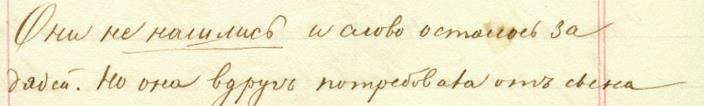 Они не нашлись и слово осталось за
дядей. Но она вдругъ потребовала отъ сына